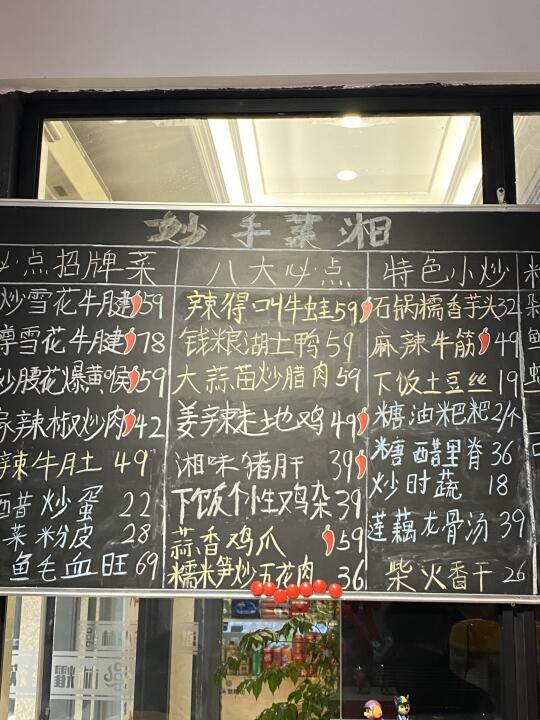 妙手菜湘
必点招牌菜
炒雪花牛腱 59
雪花牛腱 78
炒腰花爆黄喉 59
家辣椒炒肉 42
辣牛月土 49
醋炒蛋 22
菜粉皮 28
鱼毛血旺 69
八大必点
辣得叫牛蛙 59
钱粮湖土鸭 59
大蒜苗炒腊肉 59
姜辣走地鸡 49
湘味猪肝 39
下饭个性鸡杂 39
蒜香鸡爪 59
糯米笋炒五花肉 36
特色小炒
石锅糯香芋头 32
麻辣牛筋 49
下饭土豆丝 19
糖油粑粑 2/个
糖醋里脊 36
炒时蔬 18
莲藕龙骨汤 39
柴火香干 26